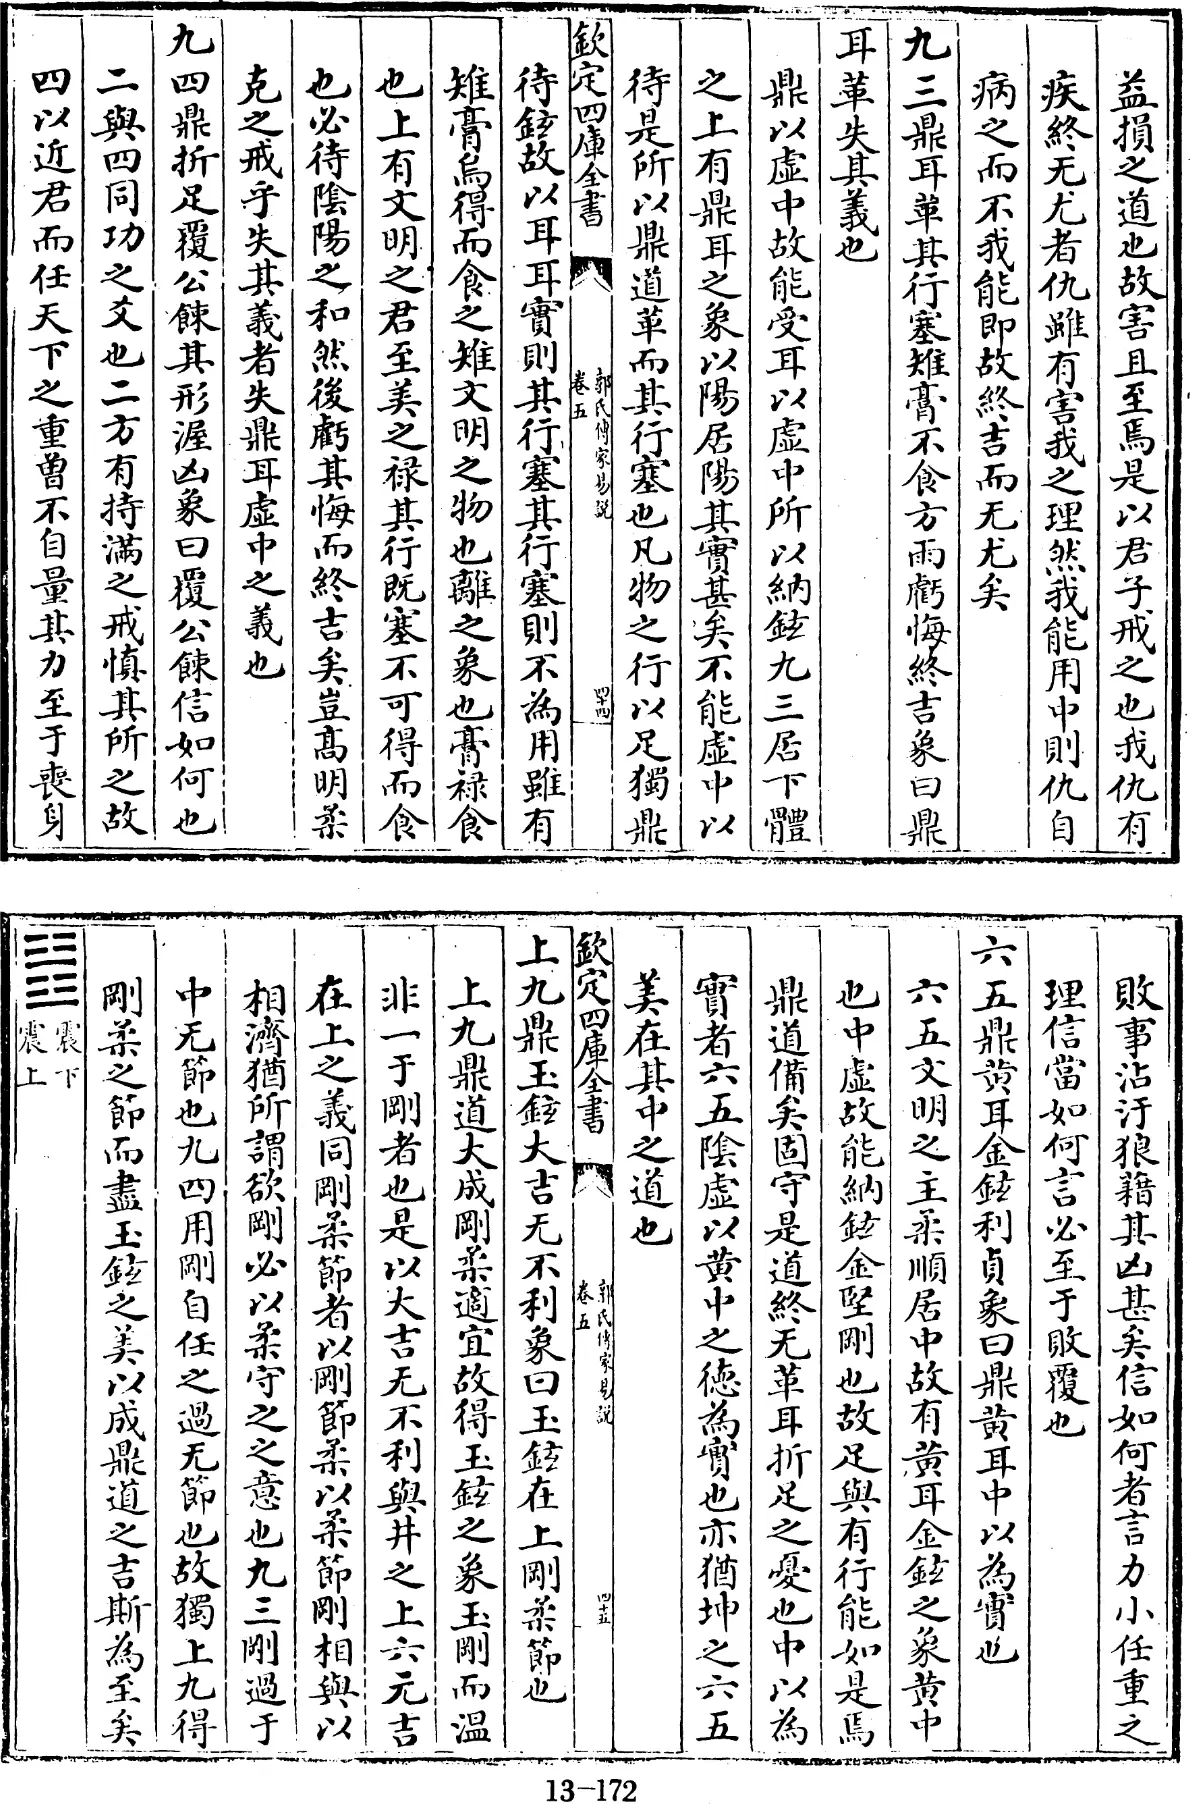 益損之道也故害且至焉是以君子戒之也我仇有
疾終无尤者仇雖有害我之理然我能用中則仇自
病之而不我能即故終吉而无尤矣
九三鼎耳革其行塞雉膏不食方雨虧悔終吉象曰鼎
耳革失其義也
鼎以虛中故能受耳以虛中所以納鉉九三居下體
之上有鼎耳之象以陽居陽其實甚矣不能虛中以
待是所以鼎道革而其行塞也凡物之行以足獨鼎
欽定四庫全書
郭氏傳家易說
卷五
四十四
待鉉故以耳耳實則其行塞其行塞則不為用雖有
雉膏烏得而食之雉文明之物也離之象也膏祿食
也上有文明之君至美之祿其行既塞不可得而食
也必待陰陽之和然後虧其悔而終吉矣豈高明柔
克之戒乎失其義者失鼎耳虛中之義也
九四鼎折足覆公餗其形渥凶象曰覆公餗信如何也
二與四同功之爻也二方有持滿之戒慎其所之故
四以近君而任天下之重曾不自量其力至于喪身
敗事沾汙狼藉其凶甚矣信如何者言力小任重之
理信當如何言必至于敗覆也
六五鼎黃耳金鉉利貞象曰鼎黃耳中以為實也
六五文明之主柔順居中故有黃耳金鉉之象黃中
也中虛故能納鉉金堅剛也故足與有行能如是焉
鼎道備矣固守是道終无革耳折足之憂也中以為
實者六五陰虛以黃中之德為實也亦猶坤之六五
美在其中之道也
欽定四庫全書
郭氏傳家易說
卷五
四十五
上九鼎玉鉉大吉无不利象曰玉鉉在上剛柔節也
上九鼎道大成剛柔適宜故得玉鉉之象玉剛而溫
非一于剛者也是以大吉无不利與井之上六元吉
在上之義同剛柔節者以剛節柔以柔節剛相與以
相濟猶所謂欲剛必以柔守之之意也九三剛過于
中无節也九四用剛自任之過无節也故獨上九得
剛柔之節而盡玉鉉之美以成鼎道之吉斯為至矣
䷲
震下
震上
13-172